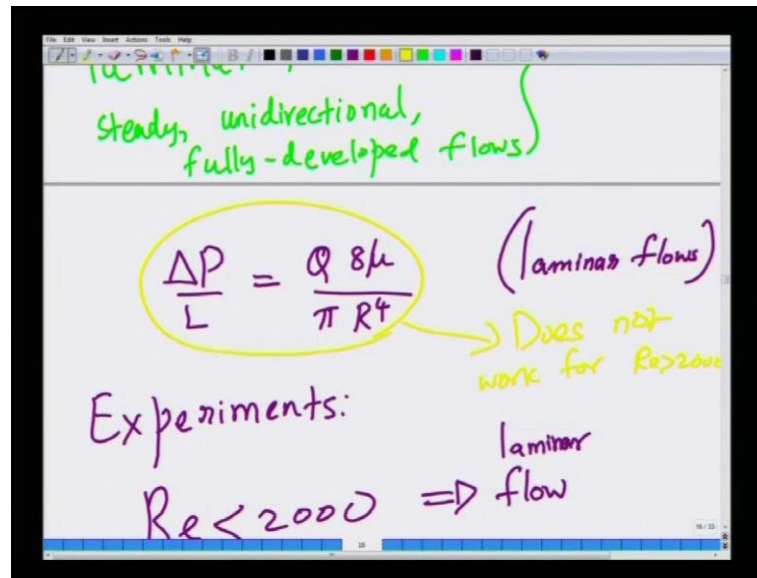 File Edit View Insert Actions Tools Help
laminar
steady, unidirectional,
fully-developed flows
ΔP/L = Q 8μ / π R⁴ (laminar flows)
Does not
work for Re>2000
Experiments:
laminar
Re < 2000 ⇒ flow
18